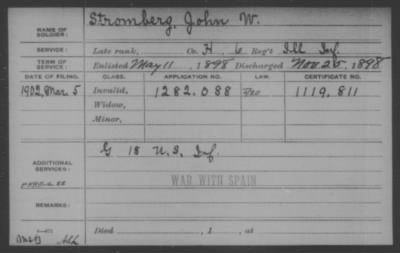 Stromberg, John W.
NAME OF SOLDIER:
SERVICE: Late rank, Co. H, 6 Reg't Ill Inf.
TERM OF SERVICE: Enlisted May 11, 1898 Discharged Nov 25, 1898
DATE OF FILING. CLASS. APPLICATION NO. LAW. CERTIFICATE NO.
1902, Mar. 5 Invalid, 1282.088 1119.811
Widow,
Minor,
G 18 U.S. Inf.
ADDITIONAL SERVICES:
WAR WITH SPAIN
REMARKS:
Died , 1 , at